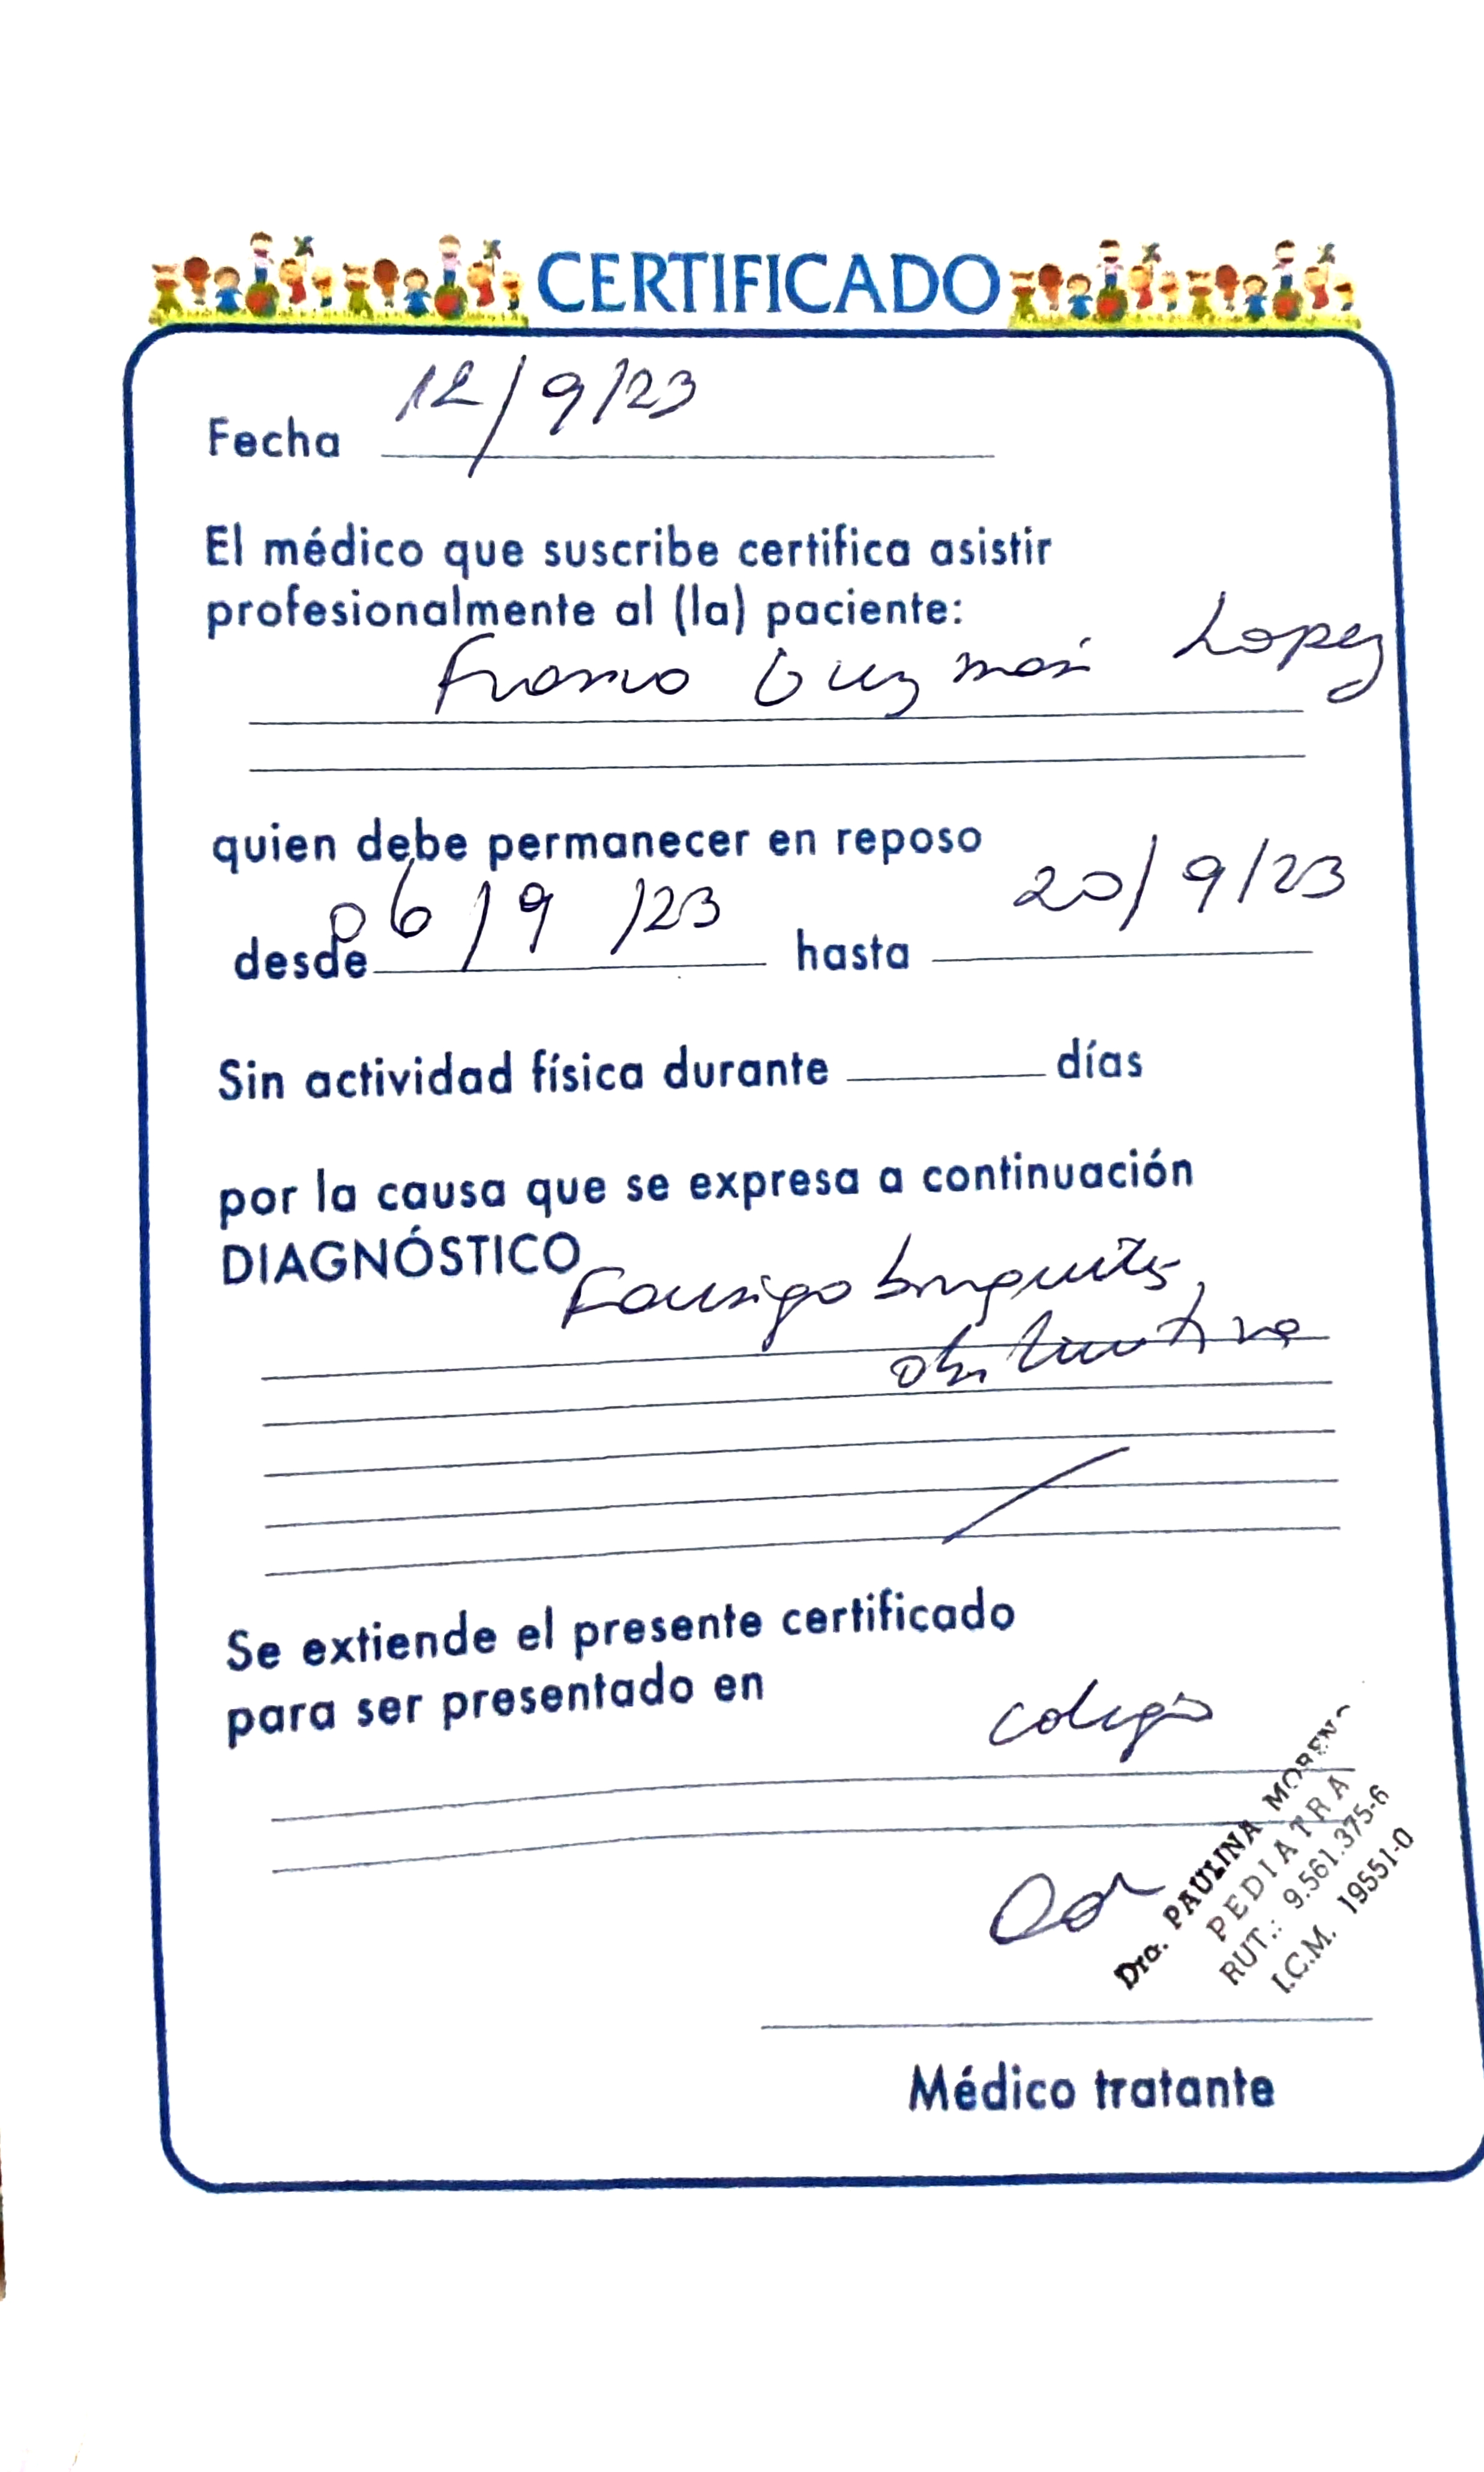 CERTIFICADO
Fecha 12/9/23
El médico que suscribe certifica asistir
profesionalmente al (la) paciente:
Guzmán Lopez
quien debe permanecer en reposo
desde 06/9/23 hasta 20/9/23
Sin actividad física durante días
por la causa que se expresa a continuación
DIAGNÓSTICO
obstructiva
Se extiende el presente certificado
para ser presentado en
colegio
Dra. PAULINA MORENO
PEDIATRA
RUT.: 9.561.375-6
I.C.M. 19551-0
Médico tratante